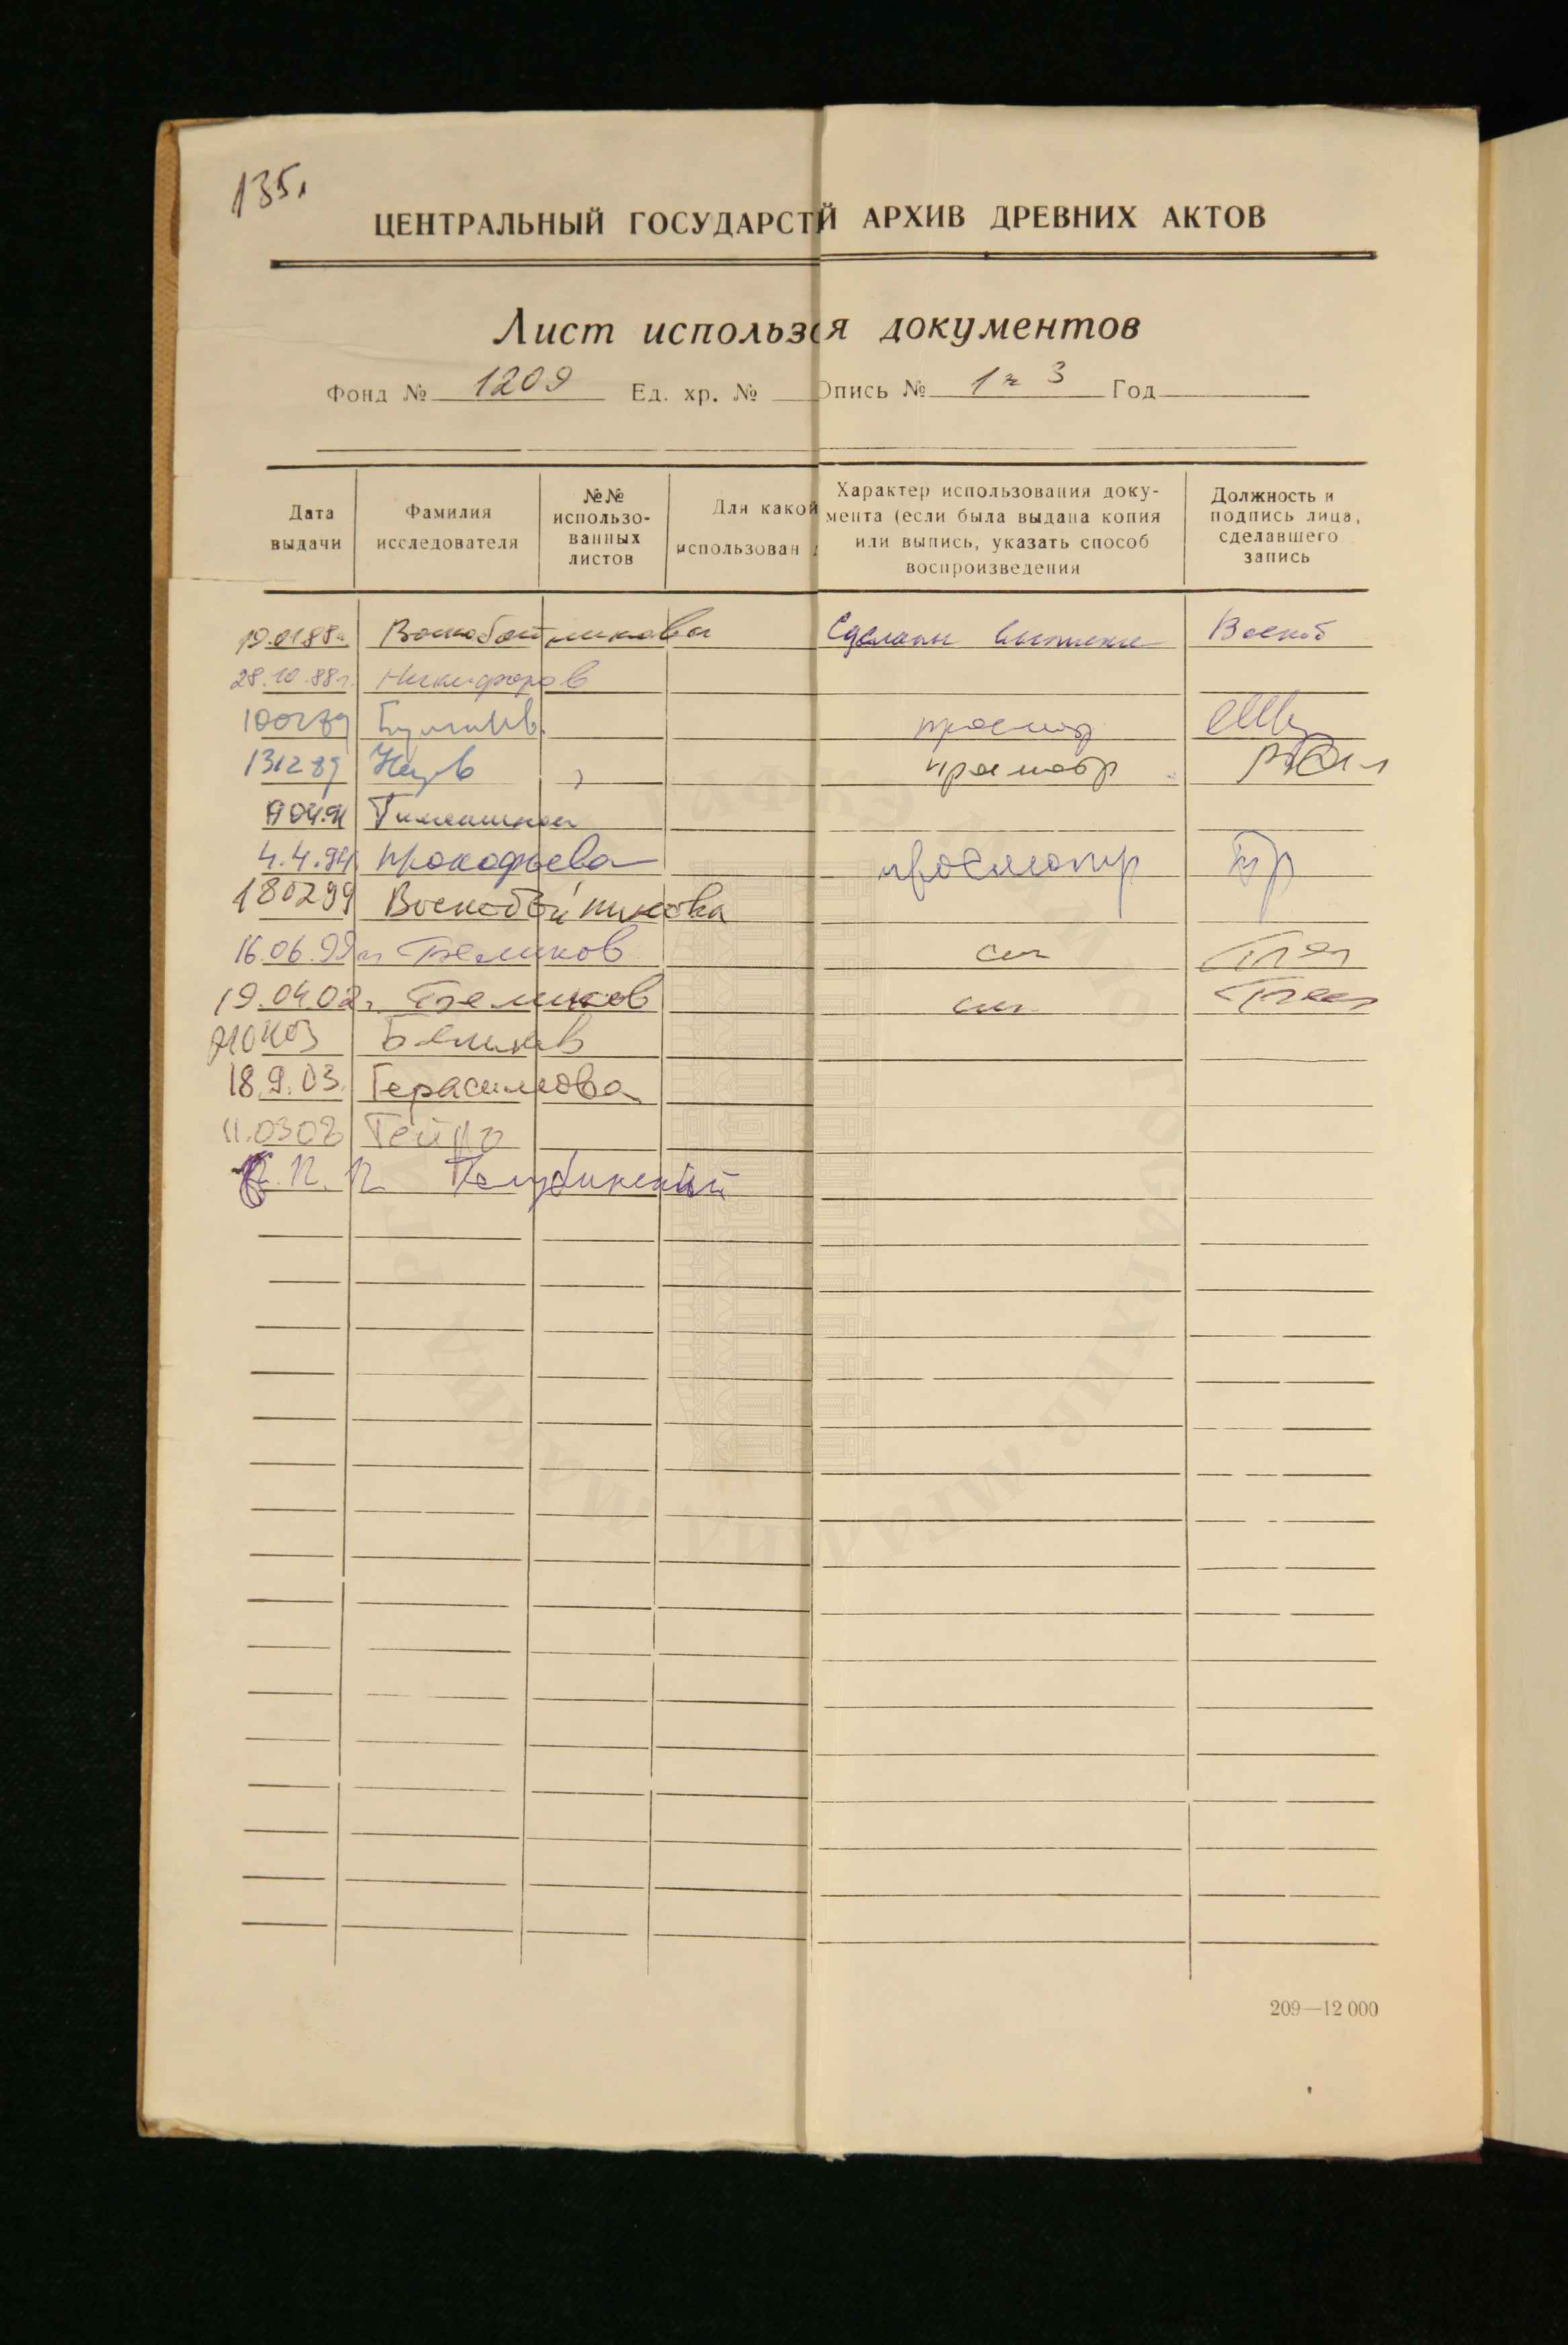 135.
ЦЕНТРАЛЬНЫЙ ГОСУДАРСТЙ АРХИВ ДРЕВНИХ АКТОВ
Лист использя документов
Фонд № 1209 Ед. хр. № Опись № 1 ч 3 Год
Дата выдачи
Фамилия исследователя
№№ использо-
ванных
листов
Для какой
использован
Характер использования доку-
мента (если была выдана копия
или выпись, указать способ
воспроизведения
Должность и
подпись лица,
сделавшего
запись
19.01.88г. Воскобойникова Сделаны выписки Воскоб
28.10.88г. Никифоров
100289
131289 просмотр
Тимошина
4.4.94 Прокофьева просмотр
180299 Воскобойникова
16.06.99г. Беликов см
19.04.02г. Беликов см
Беликов
18.9.03. Герасимова
11.0308
12. Голубинский
209—12 000